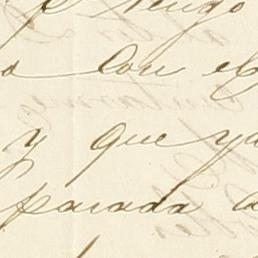 tengo
o con el
y que ya
parada a